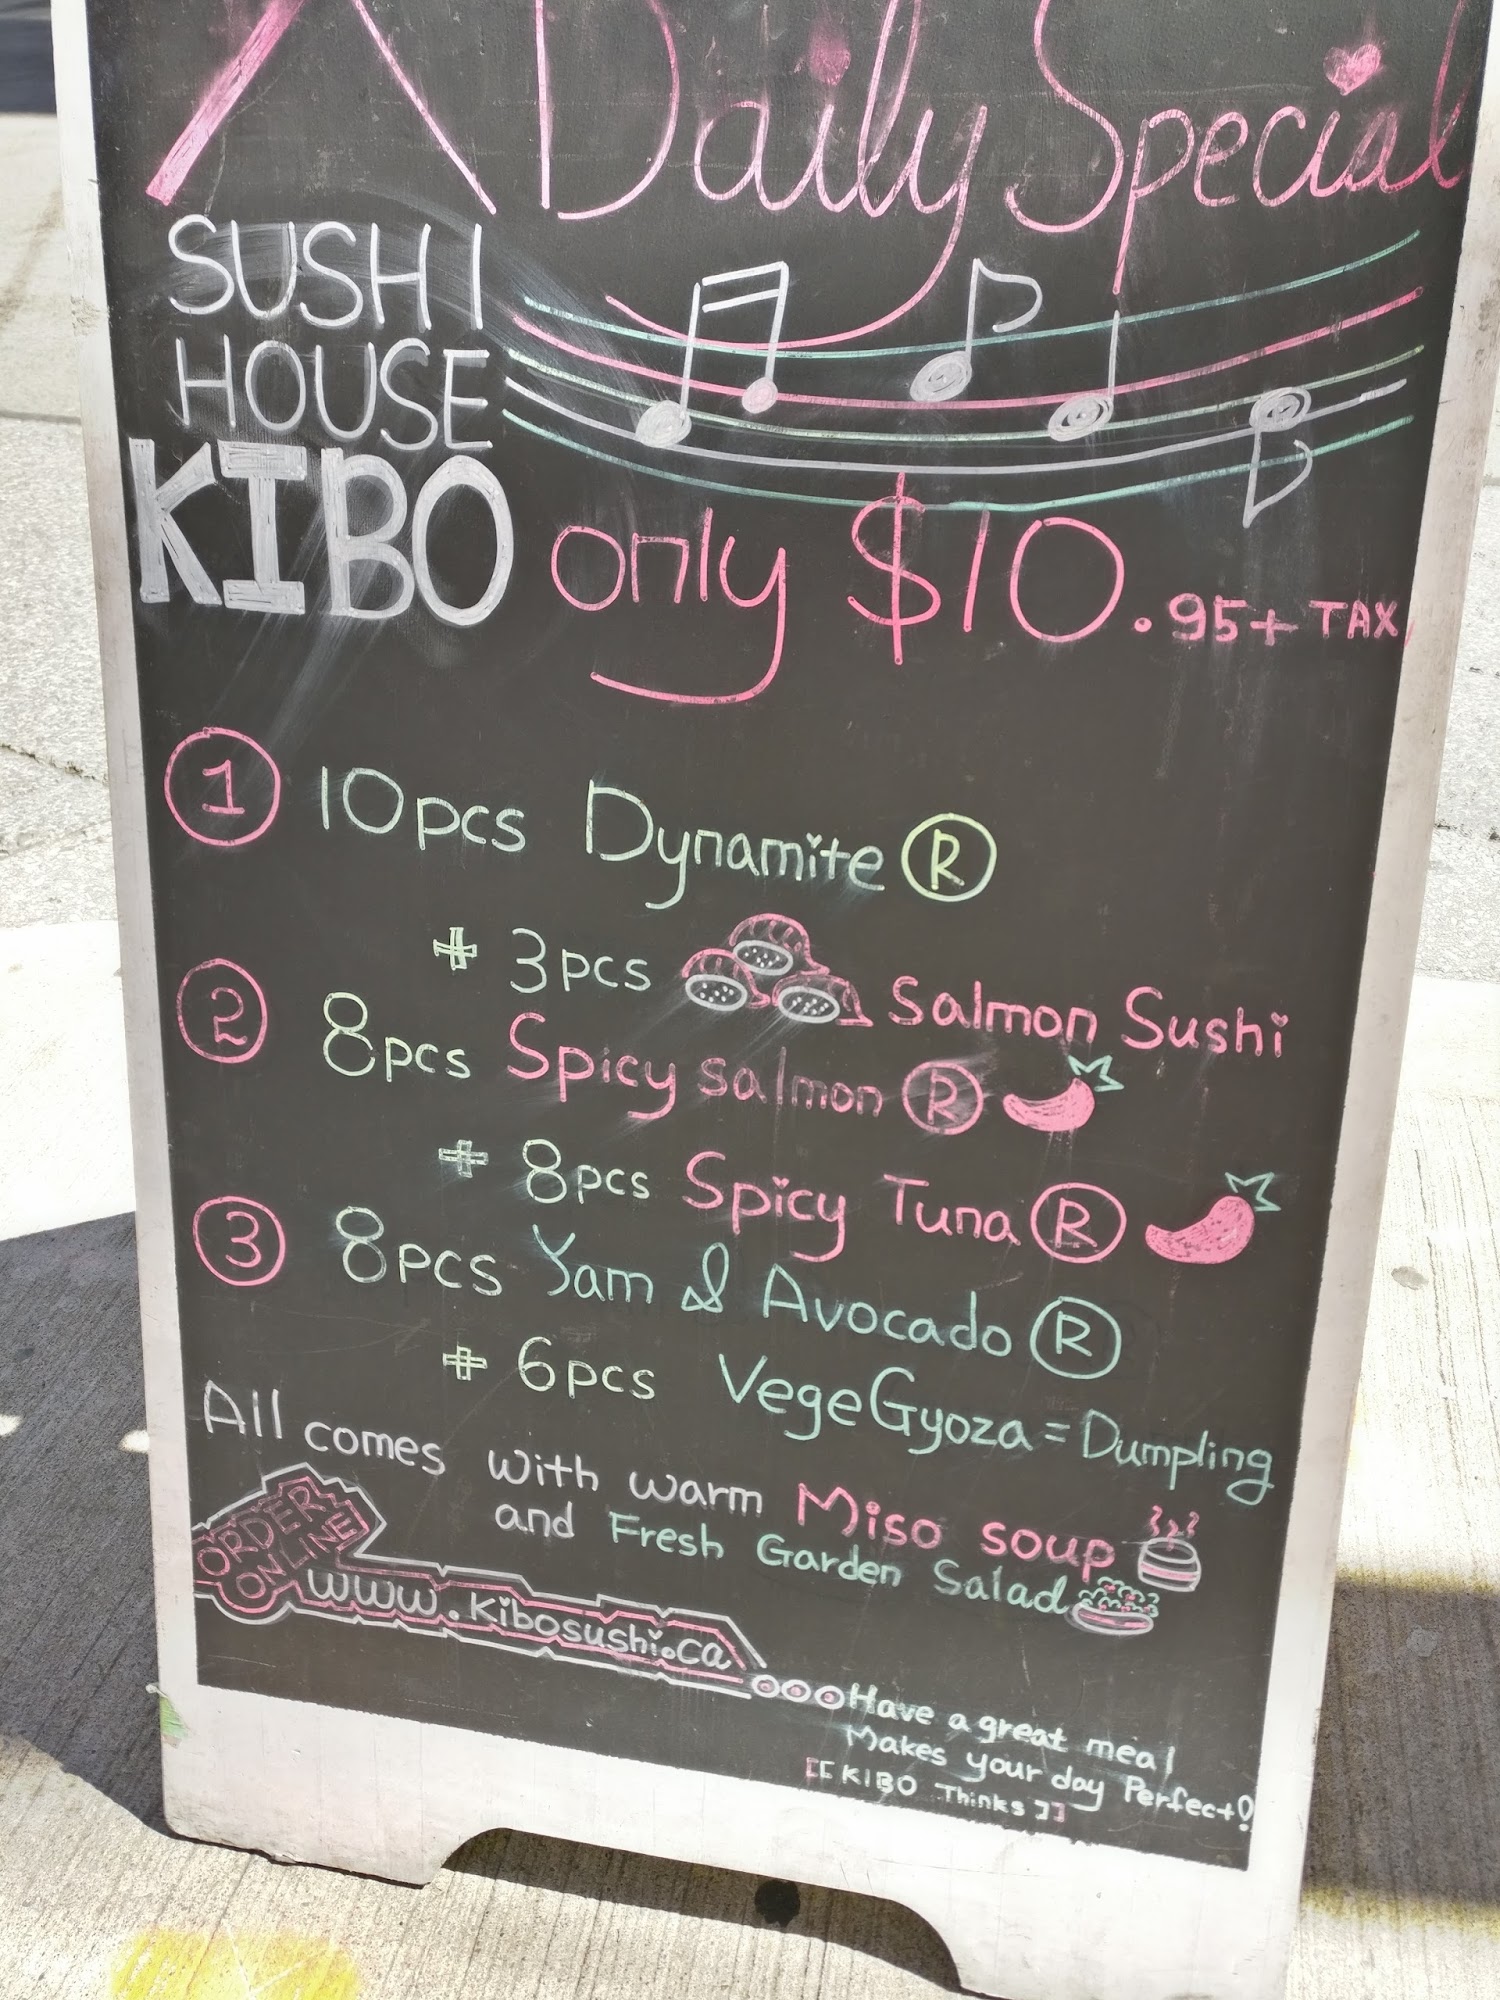 Daily Special
SUSHI
HOUSE
KIBO
only $10.95+TAX
1 10pcs Dynamite R
+ 3pcs Salmon Sushi
2 8pcs Spicy Salmon R
+ 8pcs Spicy Tuna R
3 8pcs Yam & Avocado R
+ 6pcs Vege Gyoza = Dumpling
All comes with warm Miso soup
and Fresh Garden Salad
ORDER
ONLINE
www.kibosushi.ca
Have a great meal
Makes your day Perfect!
[[KIBO Thinks]]